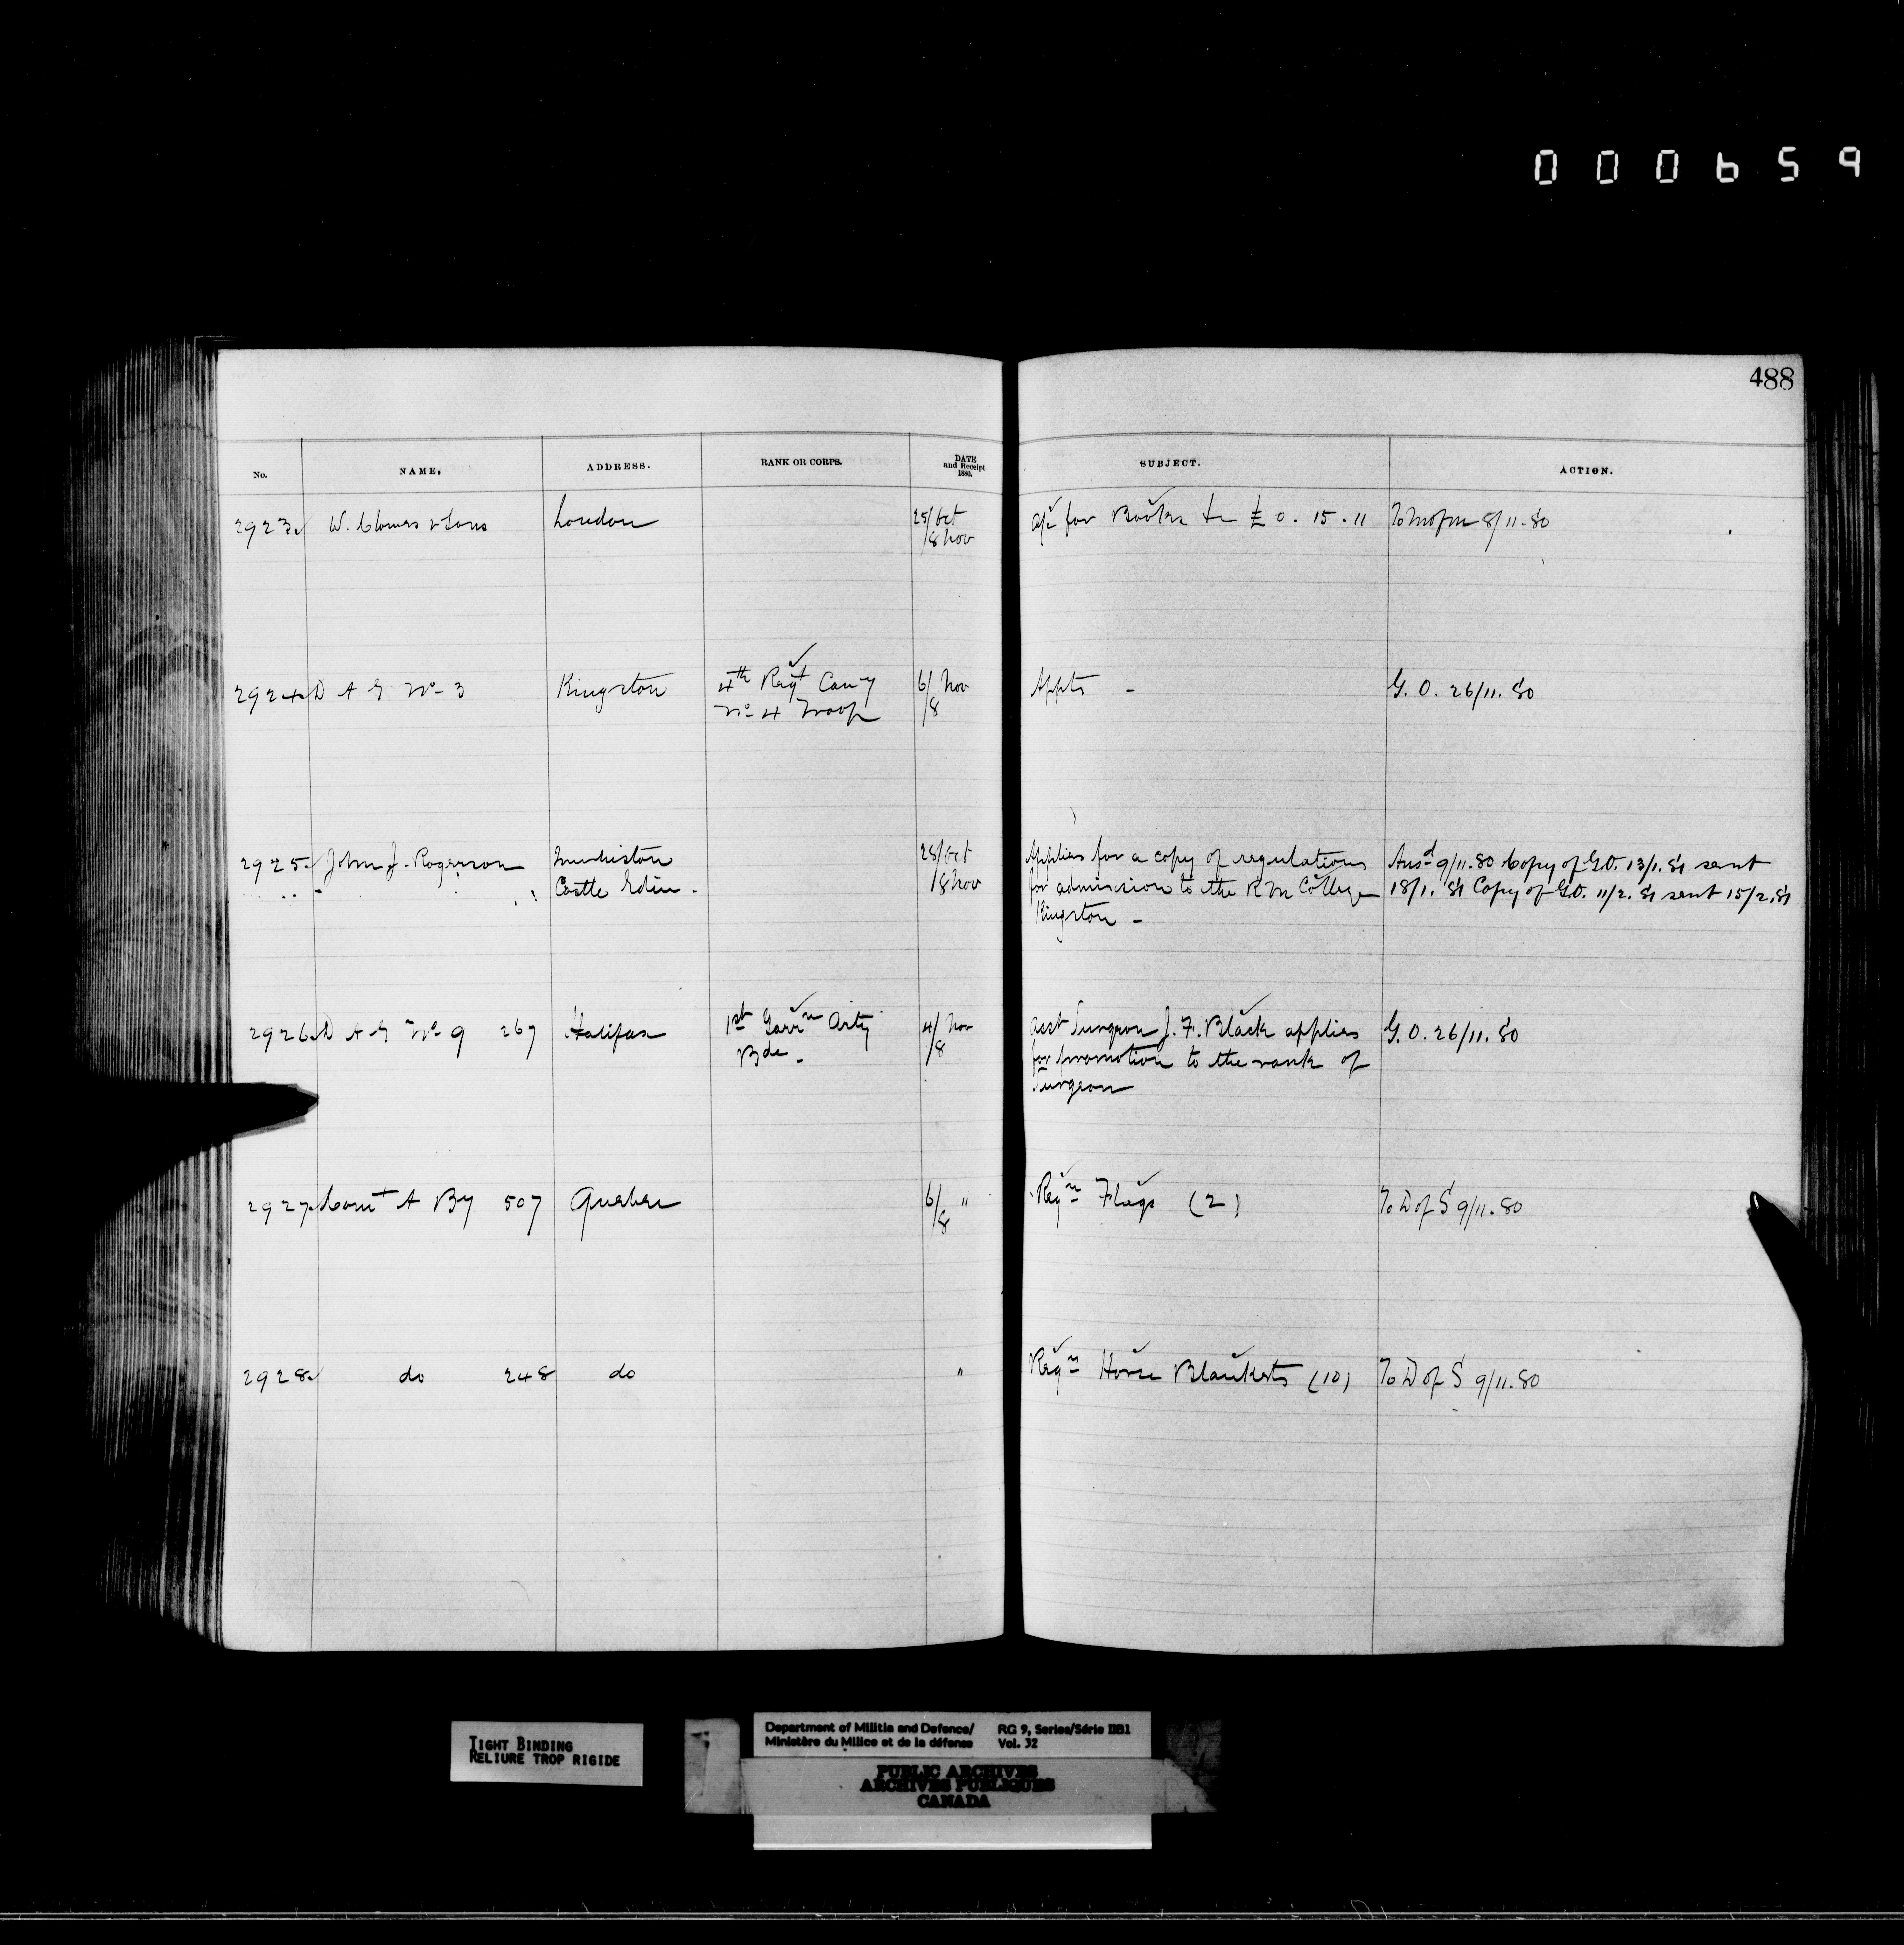 000659
488
No. NAME. ADDRESS. RANK OR CORPS. DATE and Receipt 1880. SUBJECT. ACTION.
2923 W. Clowes & Sons London 25/Oct a/c for Books &c £ 0. 15. 11 To M of M 8/11.80
/8 Nov
2924 D A G No 3 Kingston 4th Regt Cavy 6/ Nov Appts - G. O. 26/11. 80
No 4 Troop /8
2925 John J. Rogerson Merchiston 28/Oct Applies for a copy of regulations Ansd 9/11.80 Copy of G.O. 13/1.81 sent
Castle Edin - /8 Nov for admission to the R M College 18/1. 81 Copy of G.O. 11/2. 81 sent 15/2.81
Kingston -
2926 D A G No 9 267 Halifax 1st Garrn Arty 4/ Nov Asst Surgeon J. F. Black applies G. O. 26/11. 80
Bde - /8 for promotion to the rank of
Surgeon
2927 Comt A By 507 Quebec 6/ " Reqn Flags (2) To D of S 9/11.80
/8
2928 do 248 do " Reqn Horse Blankets (10) To D of S 9/11.80
TIGHT BINDING
RELIURE TROP RIGIDE
Department of Militia and Defence/ RG 9, Series/Série IIB1
Ministère du Milice et de la défense Vol. 32
PUBLIC ARCHIVES
ARCHIVES PUBLIQUES
CANADA